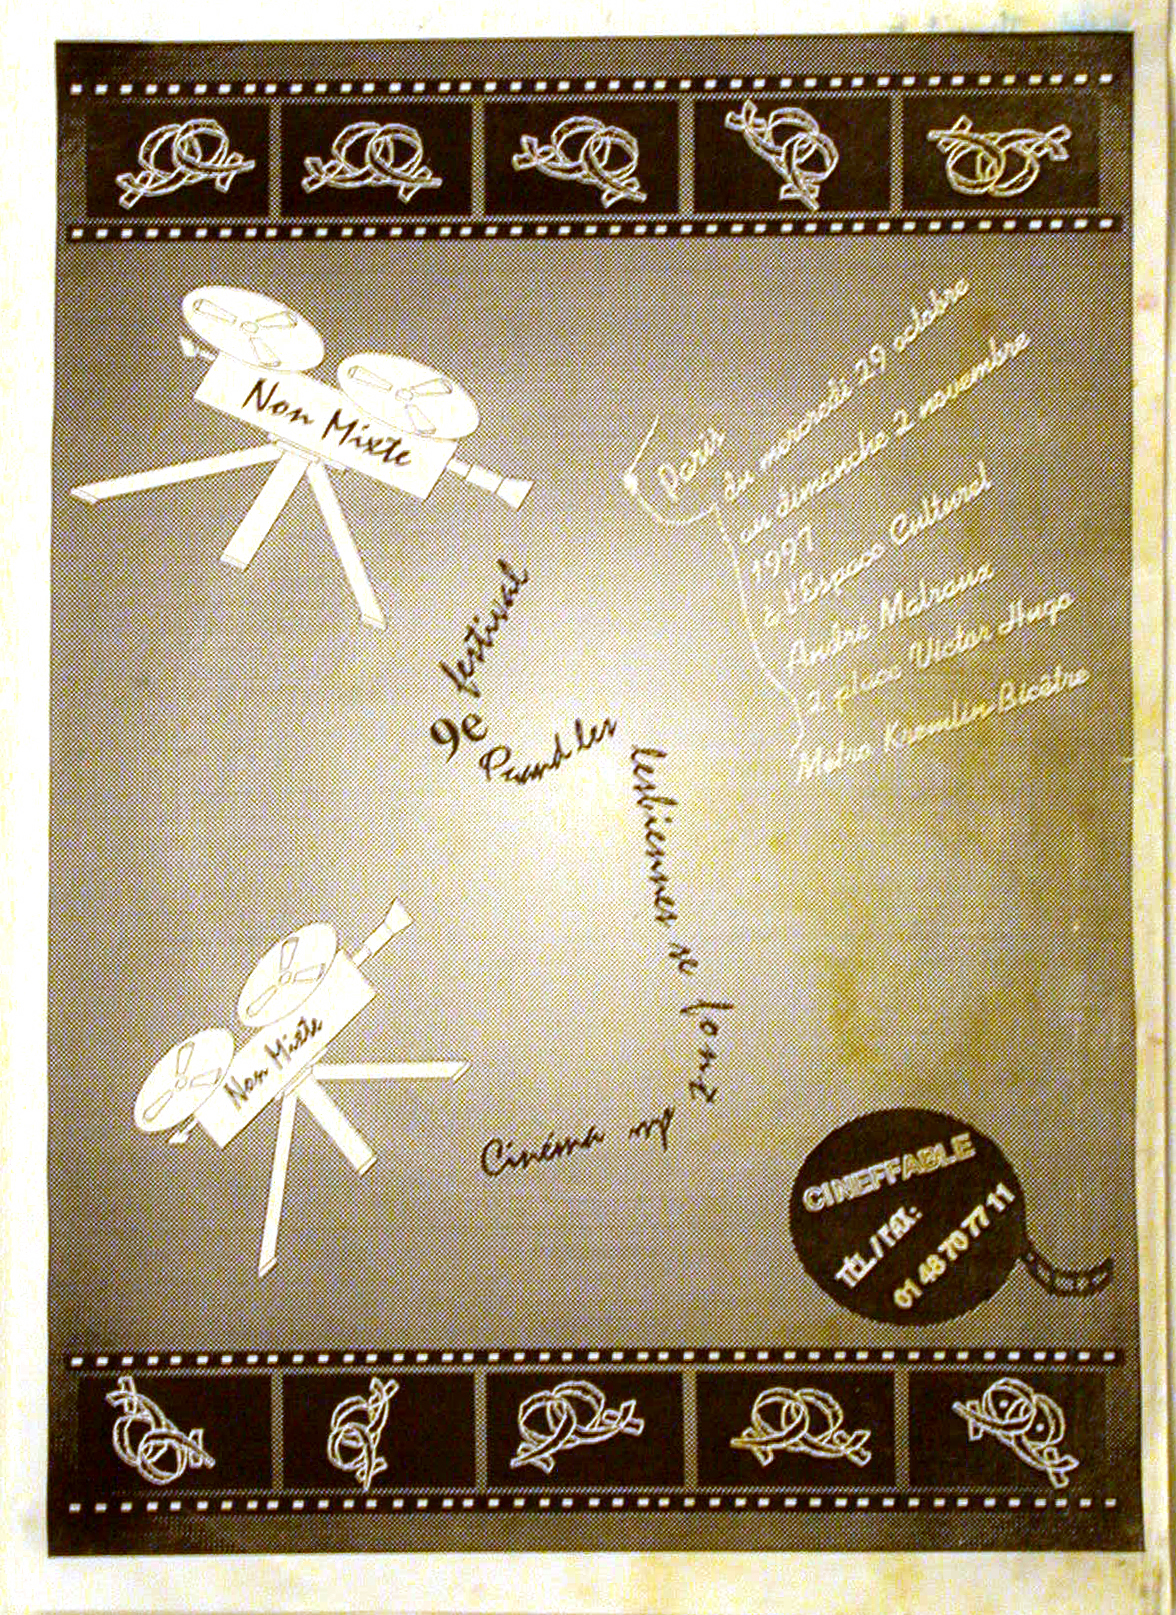 Non Mixte
Paris
du mercredi 29 octobre
au dimanche 2 novembre
1997
à l'Espace Culturel
André Malraux
2 place Victor Hugo
Métro Kremlin Bicêtre
9e festival
Quand les
lesbiennes se
font
du
Cinéma
Non Mixte
CINEFFABLE
TÉL./FAX:
01 48 70 77 11